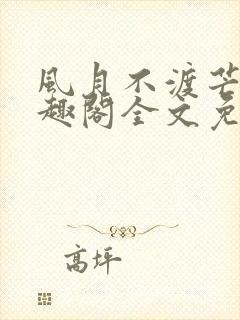 風月不渡芒
趣閣全文免
高坪